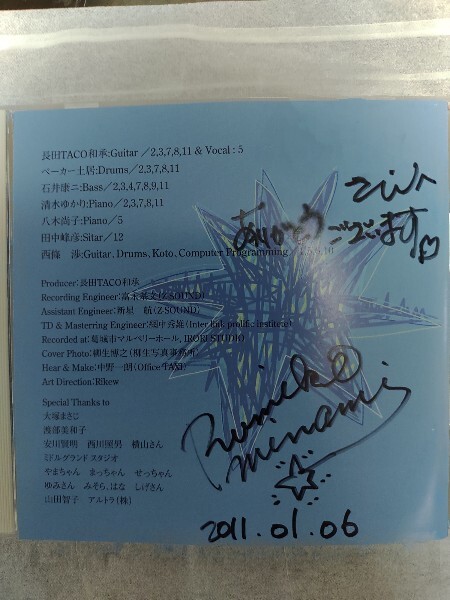 長田TACO和承:Guitar／2,3,7,8,11 & Vocal : 5
ベーカー土居:Drums／2,3,7,8,11
石井康二:Bass／2,3,4,7,8,9,11
清水ゆかり:Piano／2,3,7,8,11
八木尚子:Piano／5
田中峰彦:Sitar／12
西條　渉:Guitar, Drums, Koto, Computer Programming
ありがとう
ございます
Producer:長田TACO和承
Recording Engineer:富永泰文(Z-SOUND)
Assistant Engineer:新屋　航(Z-SOUND)
TD & Masterring Engineer:田中秀雄(Inter link prolific Institute)
Recorded at:葛城市マルベリーホール, IRORI STUDIO
Cover Photo:柳生博之(柳生写真事務所)
Hear & Make:中野一朗(Office TAXI)
Art Direction:Rikew
Special Thanks to
大塚まさじ
渡部美和子
安川賢明　西川照男　横山さん
ミドルグランド スタジオ
やまちゃん　まっちゃん　せっちゃん
ゆみさん　みそら、はな　しげさん
山田智子　アルトラ(株)
Rumiko
minami
2011.01.06